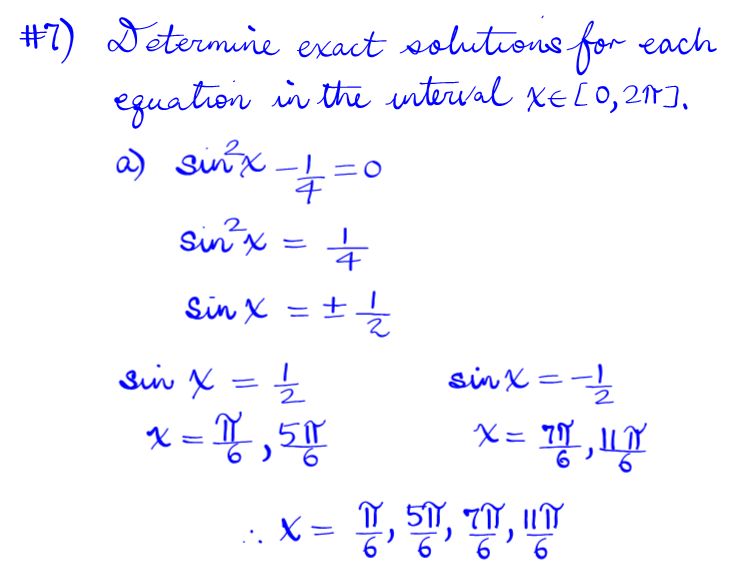 #7) Determine exact solutions for each
equation in the interval x∈[0,2π].
a) sin²x - 1/4 = 0
sin²x = 1/4
sin x = ± 1/2
sin x = 1/2    sin x = -1/2
x = π/6, 5π/6    x = 7π/6, 11π/6
∴ x = π/6, 5π/6, 7π/6, 11π/6